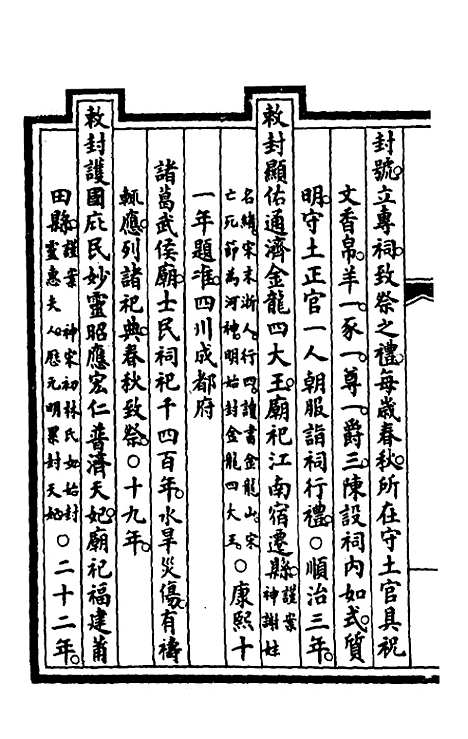 封號。立專祠。致祭之禮。每歲春秋。所在守土官具祝
文香帛。羊一。豕一。尊一。爵三。陳設祠内如式。質
明。守土正官一人朝服詣祠行禮。○順治三年。
敕封顯佑通濟金龍四大王。廟祀江南宿遷縣。謹案神謝姓
名緒。宋末浙人。行四。讀書金龍山。宋亡死節為河神。明始封金龍四大王。○康熙十
一年題准。四川成都府
諸葛武侯廟。士民祠祀千四百年。水旱災傷。有禱
輒應。列諸祀典。春秋致祭。○十九年。
敕封護國庇民妙靈昭應宏仁普濟天妃。廟祀福建莆
田縣。謹案神宋初林氏女。始封靈惠夫人。歷元明累封天妃。○二十二年。